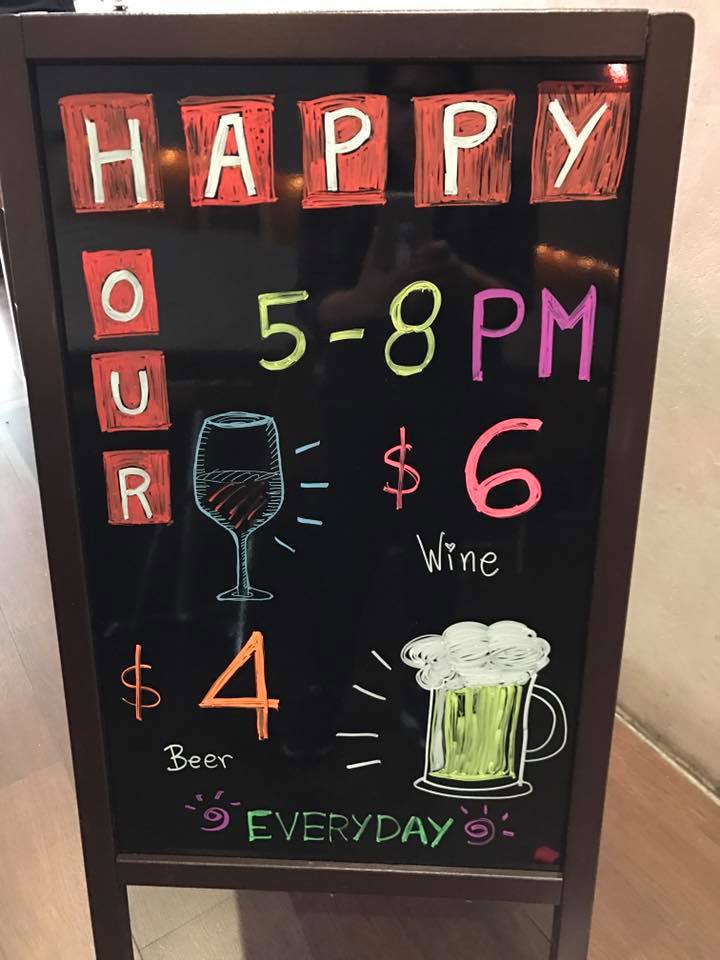 HAPPY
HOUR
5-8 PM
$6
Wine
$4
Beer
EVERYDAY